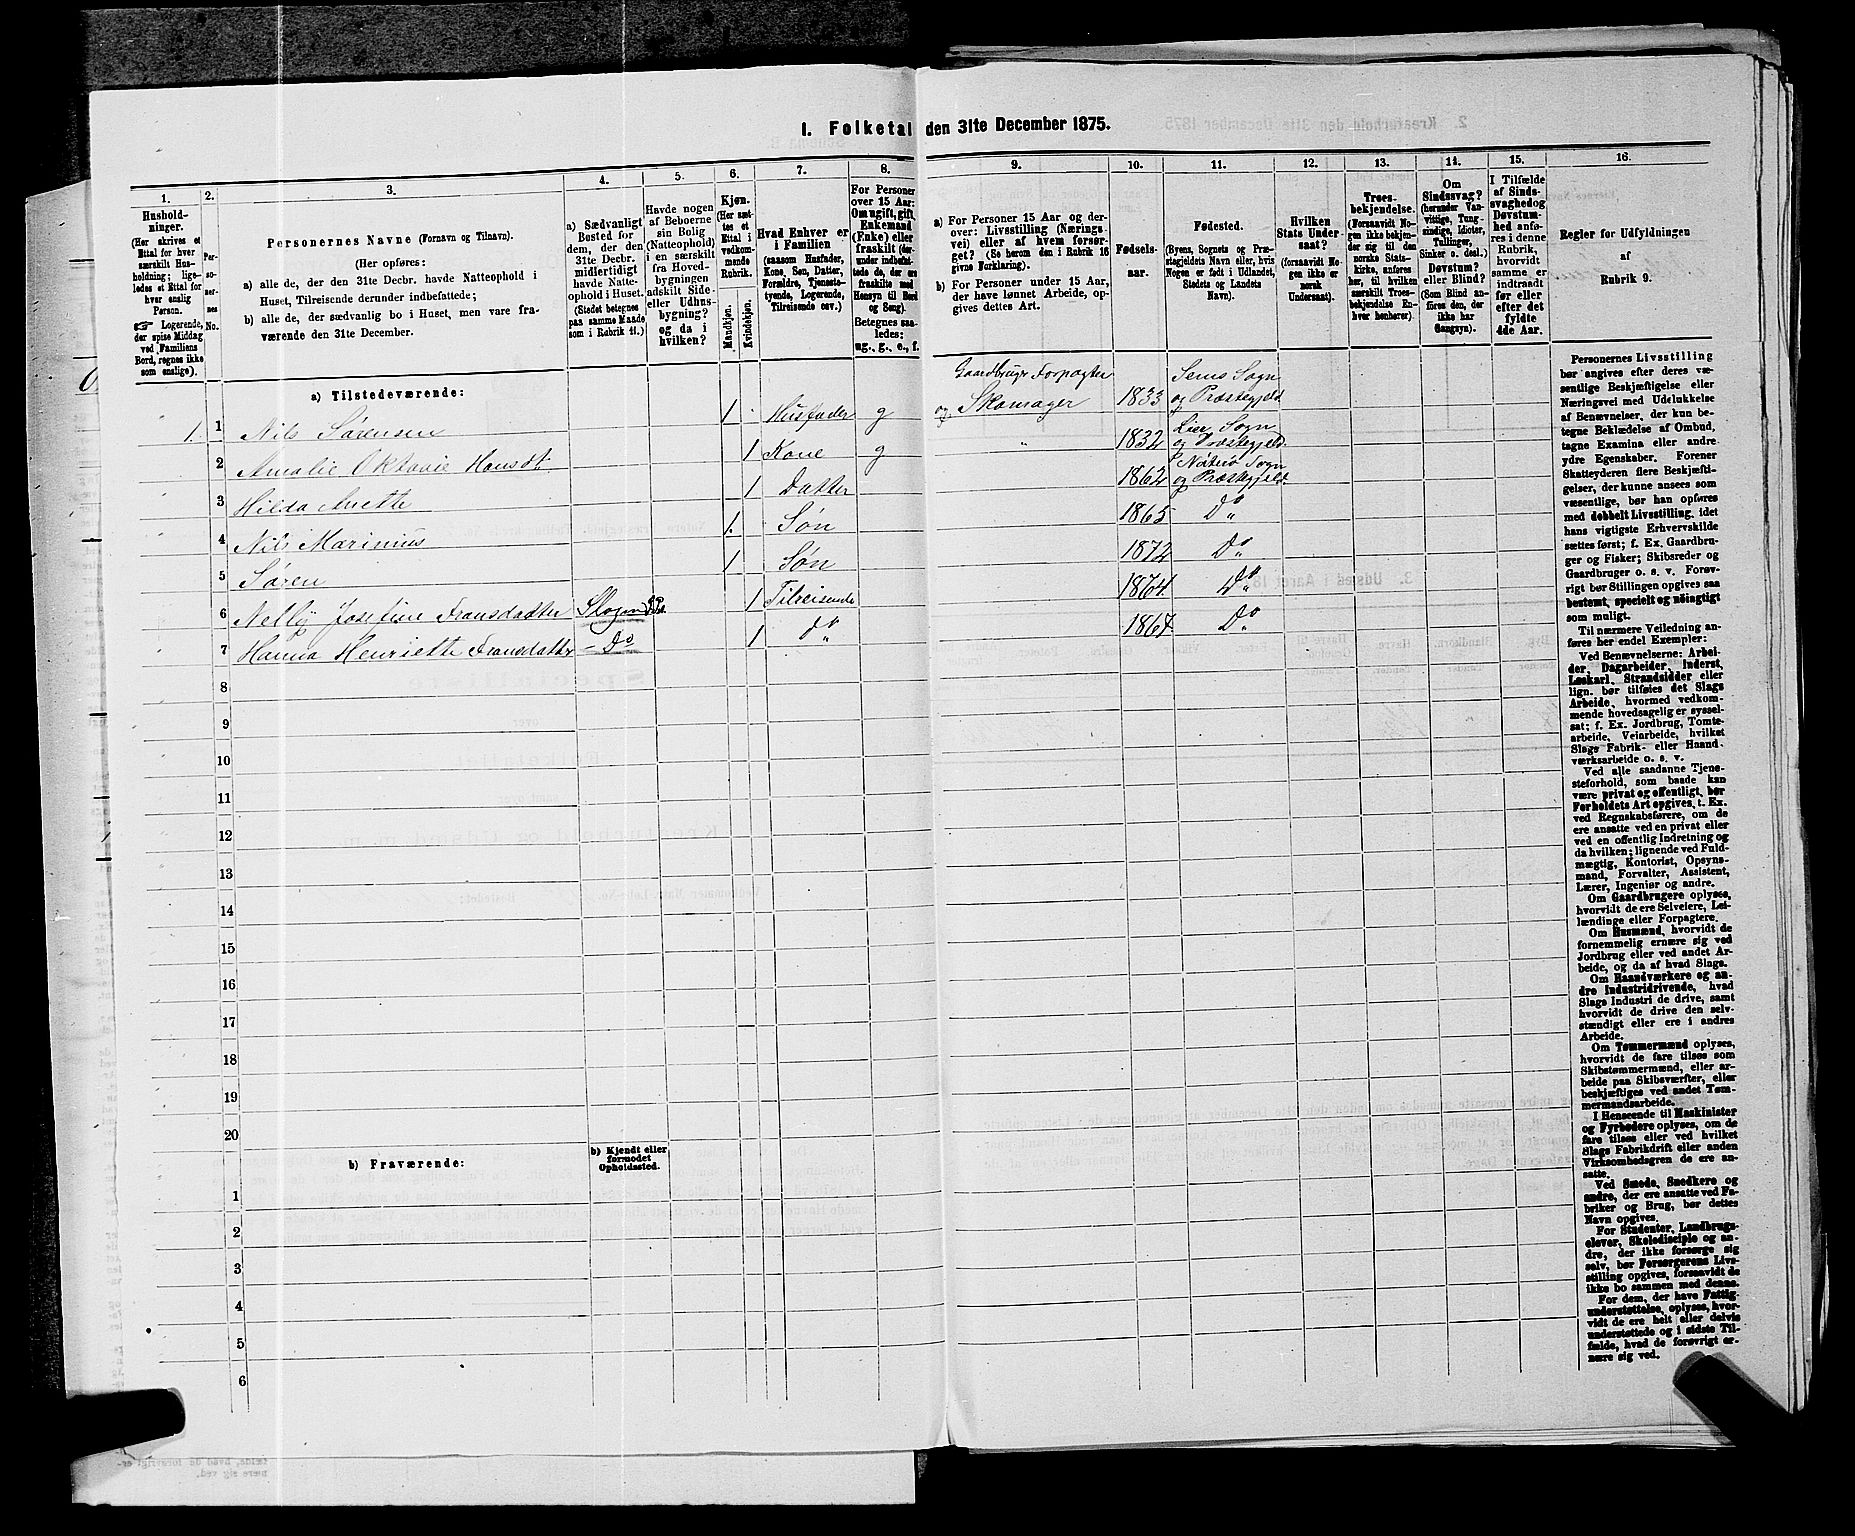 I. Folketal den 31te December 1875.
1.
Hushold-
ninger.
(Her skrives et
Ettal for hver
særskilt Hus-
holdning; lige-
ledes et Ettal for
hver enslig
Person.
☞ Logerende,
der spise Middag
ved Familiens
Bord, regnes ikke
som enslige).
2.
Per-
so-
ner-
nes
No.
3.
Personernes Navne (Fornavn og Tilnavn).
(Her opføres:
a) alle de, der den 31te Decbr. havde Natteophold i
Huset, Tilreisende derunder indbefattede;
b) alle de, der sædvanlig bo i Huset, men vare fra-
værende den 31te December.
4.
a) Sædvanligt
Bosted for
dem, der den
31te Decbr.
midlertidigt
havde Natte-
ophold i Huset.
(Stedet betegnes
paa samme Maade
som i Rubrik 11.)
5.
Havde nogen
af Beboerne
sin Bolig
(Natteophold)
i en særskilt
fra Hoved-
bygningen
adskilt Side-
eller Udhus-
bygning?
og da i
hvilken?
6.
Kjøn.
(Her sæt-
tes et
Ettal i
vedkom-
mende
Rubrik.
Mandkjøn.
Kvindekjøn.
7.
Hvad Enhver er
i Familien
(saasom Husfader,
Kone, Søn, Datter,
Forældre, Tjeneste-
tyende, Logerende,
Tilreisende osv.)
8.
For Personer
over 15 Aar:
Om ugift, gift,
Enkemand
(Enke) eller
fraskilt
Betegnes saa-
ledes:
ug., g., e., f.
9.
a) For Personer 15 Aar og der-
over: Livsstilling (Nærings-
vei) eller af hvem forsør-
get? (Se herom den i Rubrik 16
givne Forklaring).
b) For Personer under 15 Aar,
der have lønnet Arbeide, op-
gives dettes Art.
10.
Fødsels-
aar.
11.
Fødested.
(Byens, Sognets og Præ-
stegjeldets Navn eller, hvis
Nogen er født i Udlandet,
Stedets og Landets
Navn).
12.
Hvilken
Stats Under-
saat?
(forsaavidt No-
gen ikke er
norsk
Undersaat).
13.
Troes-
bekjendelse.
(Forsaavidt No-
gen ikke bekjen-
der sig til den
norske Stats-
kirke, anføres
her, til hvilken
særskilt Troes-
bekjendelse En-
hver henhører).
14.
Om
Sindssvag?
(herunder Van-
vittige, Tung-
sindige, Idioter,
Tullinger,
Sinker o. desl.)
Døvstum?
eller Blind?
(Som Blind an-
føres den, der
ikke har
Gangsyn).
15.
I Tilfælde
af Sinds-
svaghed og
Døvstum-
hed anfø-
res i denne
Rubrik,
hvorvidt
samme er
indtraadt
før eller
efter det
fyldte
4de Aar.
16.
Regler for Udfyldningen
af
Rubrik 9.
a) Tilstedeværende:
1. 1 Nils Sørensen 1 Husfader g Gaardbruger Forpagter og Skomager 1833 Sems Sogn og Præstegjeld
2 Amalie Oktavie Hansdt. 1 Kone g „ 1832 Lier Sogn og Præstegjeld
3 Hilda Anette 1 Datter 1862 Nøterø Sogn og Præstegjeld
4 Nils Marinius 1 Søn 1865 Do
5 Søren 1 Søn 1872 Do
6 Nelly Josefine Fransdatter 1 Tilreisende 1864 Do
7 Hanna Henriette Fransdatter Do 1 do 1867 Do
8
9
10
11
12
13
14
15
16
17
18
19
20
b) Fraværende:
b) Kjendt eller
formodet
Opholdssted.
1
2
3
4
5
6
Personernes Livsstilling
bør angives efter deres væ-
sentlige Beskjæftigelse eller
Næringsvei med Udelukkelse
af Benævnelser, der kun be-
tegne Beklædelse af Ombud,
tagne Examina eller andre
ydre Egenskaber. Forener
Skatteyderen flere Beskjæfti-
gelser, der kunne ansees som
væsentlige, bør han opføres
med dobbelt Livsstilling, idet
hans vigtigste Erhvervskilde
sættes først; f. Ex. Gaardbru-
ger og Fisker; Skibsreder og
Gaardbruger o. s. v. Forøv-
rigt bør Stillingen opgives saa
bestemt, specielt og nøiagtigt
som muligt.
Til nærmere Veiledning an-
føres her endel Exempler:
Ved Benævnelserne: Arbei-
der, Dagarbeider, Inderst,
Løskarl, Strandsidder eller
lign. bør tilføies det Slags
Arbeide, hvormed vedkom-
mende hovedsagelig er syssel-
sat; f. Ex. Jordbrug, Tomte-
arbeide, Veiarbeide, hvilket
Slags Fabrik- eller Haand-
værksarbeide o. s. v.
Ved alle saadanne Tjene-
steforhold, som baade kan
være privat og offentligt, bør
Forholdets Art opgives, t. Ex.
ved Regnskabsførere, om de
ere ansatte ved en privat eller
ved en offentlig Indretning og
da hvilken; lignende ved Fuld-
mægtig, Kontorist, Opsyns-
mand, Forvalter, Assistent,
Lærer, Ingeniør og andre.
Om Gaardbrugere oplyses,
hvorvidt de ere Selveiere, Lei-
lændinge eller Forpagtere.
Om Husmænd, hvorvidt de
fornemmelig ernære sig ved
Jordbrug eller ved andet Ar-
beide, og da af hvad Slags.
Om Haandværkere og an-
dre Industridrivende, hvad
Slags Industri de drive, samt
hvorvidt de drive den selv-
stændigt eller ere i andres
Arbeide.
Om Tømmermænd oplyses,
hvorvidt de fare tilsøs som
Skibstømmermænd, eller ar-
beide paa Skibsværfter, eller
beskjæftiges ved andet Tøm-
mermandsarbeide.
I Henseende til Maskinister
og Fyrbødere oplyses, om de
fare tilsøs eller ved hvilket
Slags Fabrikdrift eller anden
Virksomhedsgren de ere an-
satte.
Ved Smede, Snedkere og
andre, der ere ansatte ved Fa-
briker og Brug, bør dettes
Navn opgives.
For Studenter, Landbrugs-
elever, Skoledisciple og an-
dre, der ikke forsørge sig
selv, bør Forsørgerens Livs-
stilling opgives, forsaavidt de
ikke bo sammen med denne.
For dem, der have Fattig-
understøttelse, oplyses, hvor-
vidt de ere helt eller delvis
understøttede og i sidste Til-
fælde, hvad de forøvrigt er-
nære sig ved.